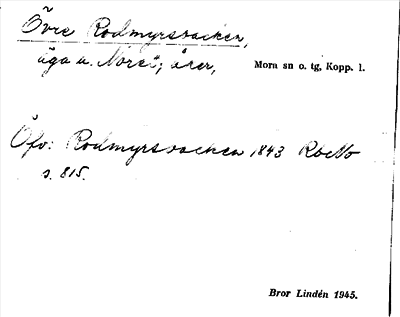 Övre Rodmyrsbacken,
äga u. Noret; årer, Mora sn o. tg, Kopp. l.
Öfv: Rodmyrsbacken 1843 RbNo
s. 815.
Bror Lindén 1945.